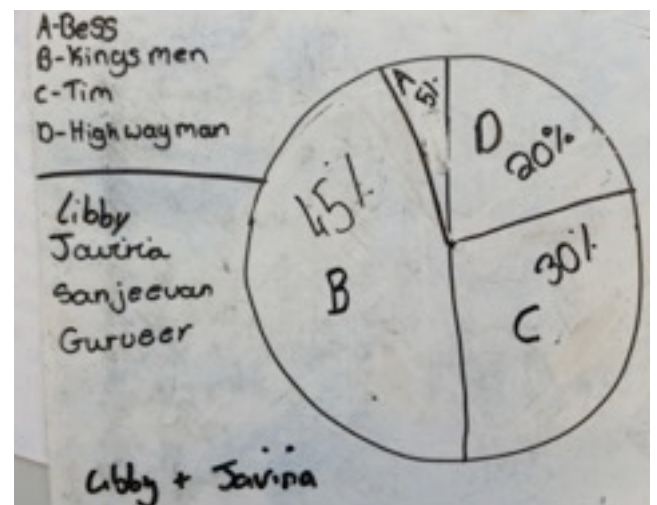 A-Bess
B-Kingsmen
C-Tim
D-Highwayman
Libby
Javiria
Sanjeevan
Guruser
A 5%
D
20%
45%
B
30%
C
Libby + Javiria